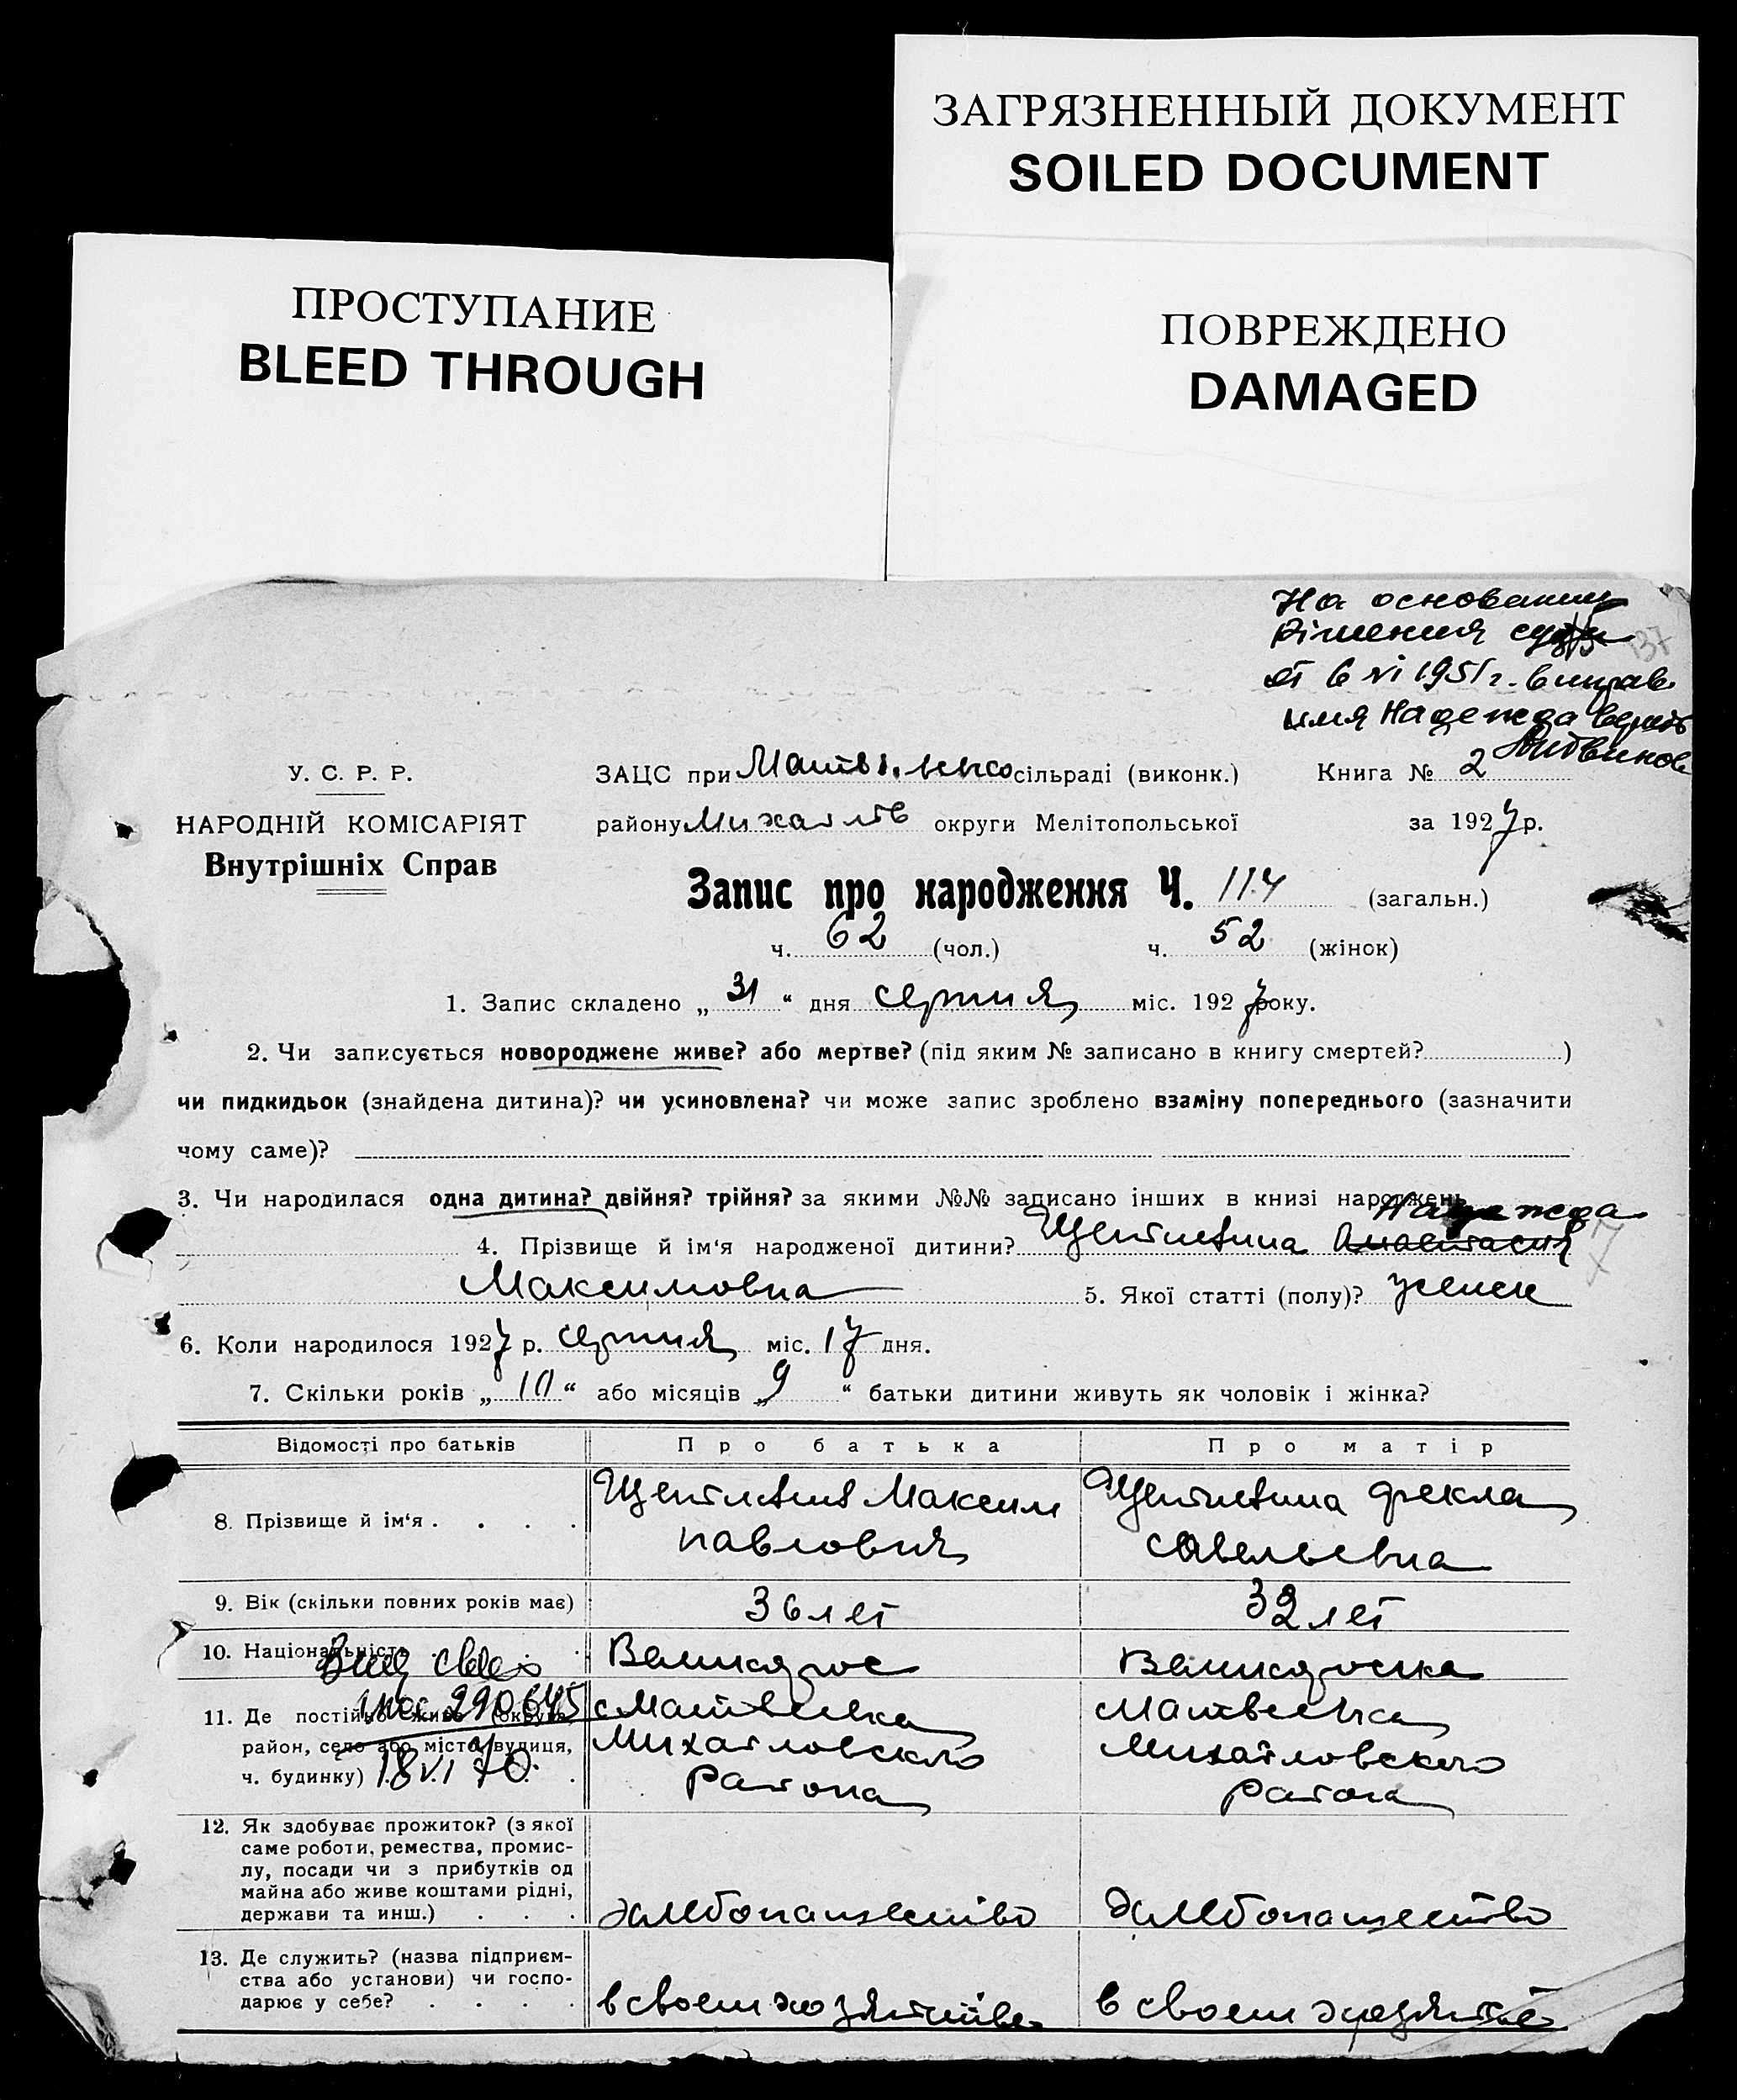 ЗАГРЯЗНЕННЫЙ ДОКУМЕНТ
SOILED DOCUMENT
ПРОСТУПАНИЕ
BLEED THROUGH
ПОВРЕЖДЕНО
DAMAGED
На основании
рішения суда
от 6 VI 1951 г.
имя Надежда верить
137
У. С. Р. Р.
НАРОДНІЙ КОМІСАРІЯТ
Внутрішніх Справ
ЗАЦС при сільраді (виконк.) Книга № 2
району Михайлів округи Мелітопольської за 1927 р.
Запис про народження Ч. 114 (загальн.)
ч. 62 (чол.) ч. 52 (жінок)
1. Запис складено „ 31 “ дня серпня міс. 1927 року.
2. Чи записується новороджене живе? або мертве? (під яким № записано в книгу смертей? )
чи пидкидьок (знайдена дитина)? чи усиновлена? чи може запис зроблено взаміну попереднього (зазначити
чому саме)?
3. Чи народилася одна дитина? двійня? трійня? за якими №№ записано інших в книзі народжень
Надежда
4. Прізвище й ім'я народженої дитини? Щетинина Анастасия
Максимовна 5. Якої статті (полу)? женск
6. Коли народилося 1927 р. серпня міс. 17 дня.
7. Скільки років „ 10 “ або місяців „ 9 “ батьки дитини живуть як чоловік і жінка?
Відомості про батьків Про батька Про матір
8. Прізвище й ім'я . . . . Щетинин Максим Павлович
Щетинина Фекла Савельевна
9. Вік (скільки повних років має) 36 лет 32 лет
10. Національність Великорос Великороска
11. Де постійно живе (округа, район, село або місто, вулиця, ч. будинку)
с Матвеевка Михайловского Района
Матвеевка Михайловского Района
290645
18 VI 70.
12. Як здобуває прожиток? (з якої
саме роботи, ремества, промис-
лу, посади чи з прибутків од
майна або живе коштами рідні,
держави та инш.) . . . хлебопашество хлебопашество
13. Де служить? (назва підприєм-
ства або установи) чи госпо-
дарює у себе? . . . . в своем хозяйстве в своем хозяйстве